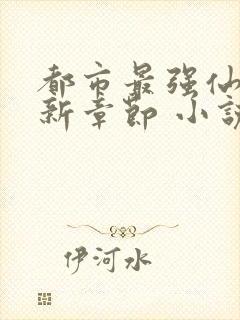 都市最强仙
新章節 小說
伊河水